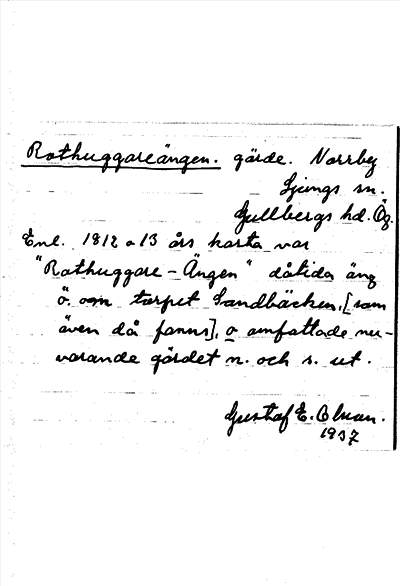 Rothuggareängen. gärde. Norrby
Ljungs sn.
Gullbergs hd. Ög.
Enl. 1812 o 13 års karta var
"Rothuggare-Ängen" dåtida äng
ö. om torpet Sandbäcken, [som
även då fanns], o omfattade nu-
varande gärdet n. och s. ut.
Gustaf E.
1937